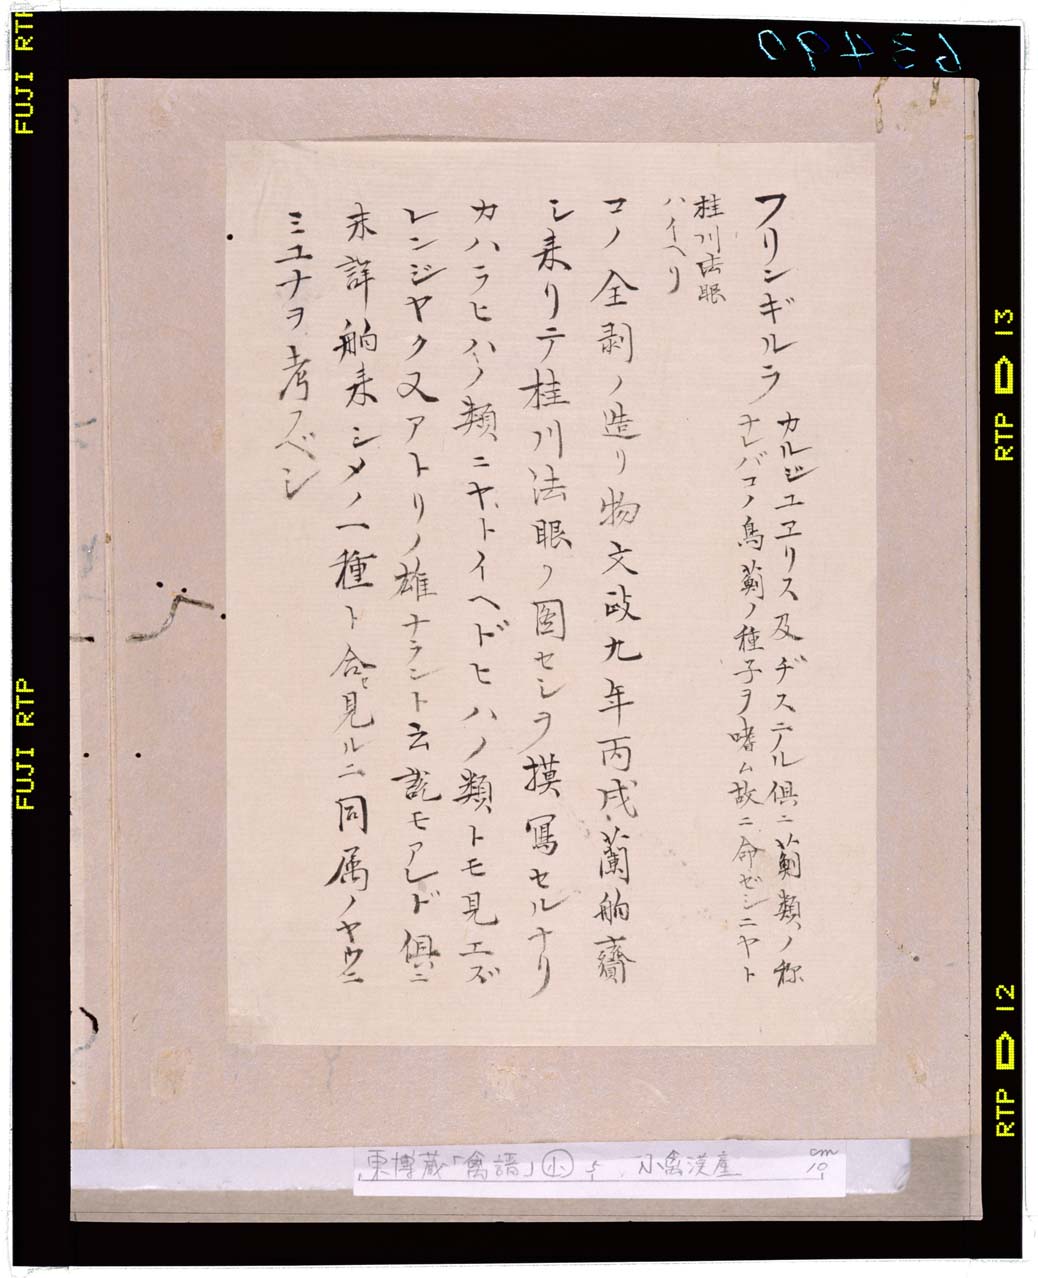 フリンギルラ
カルジユヱリス及ヂステル倶ニ薊類ノ称
ナレバコノ鳥薊ノ種子ヲ嗜ム故ニ命ゼシニヤト
桂川法眼
ハイヘリ
コノ全剥ノ造リ物文政九年丙戌蘭舶齎
シ来リテ桂川法眼ノ図セシヲ摸冩セルナリ
カハラヒハノ類ニヤトイヘドヒハノ類トモ見エズ
レンジヤク又アトリノ雄ナラント云説モアレド倶ニ
未詳舶来シメノ一種ト合セ見ルニ同属ノヤウニ
ミユナヲ考フベシ
63490
FUJI RTP
FUJI RTP
RTP 13
RTP 12
東博蔵「禽譜」小 5 小禽漢産
cm
10